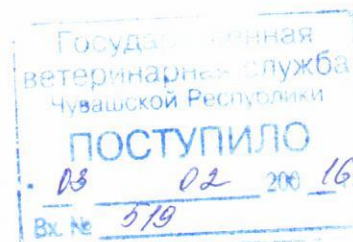 Государственная
ветеринарная служба
Чувашской Республики
ПОСТУПИЛО
03 02 200 16
Вх. № 519